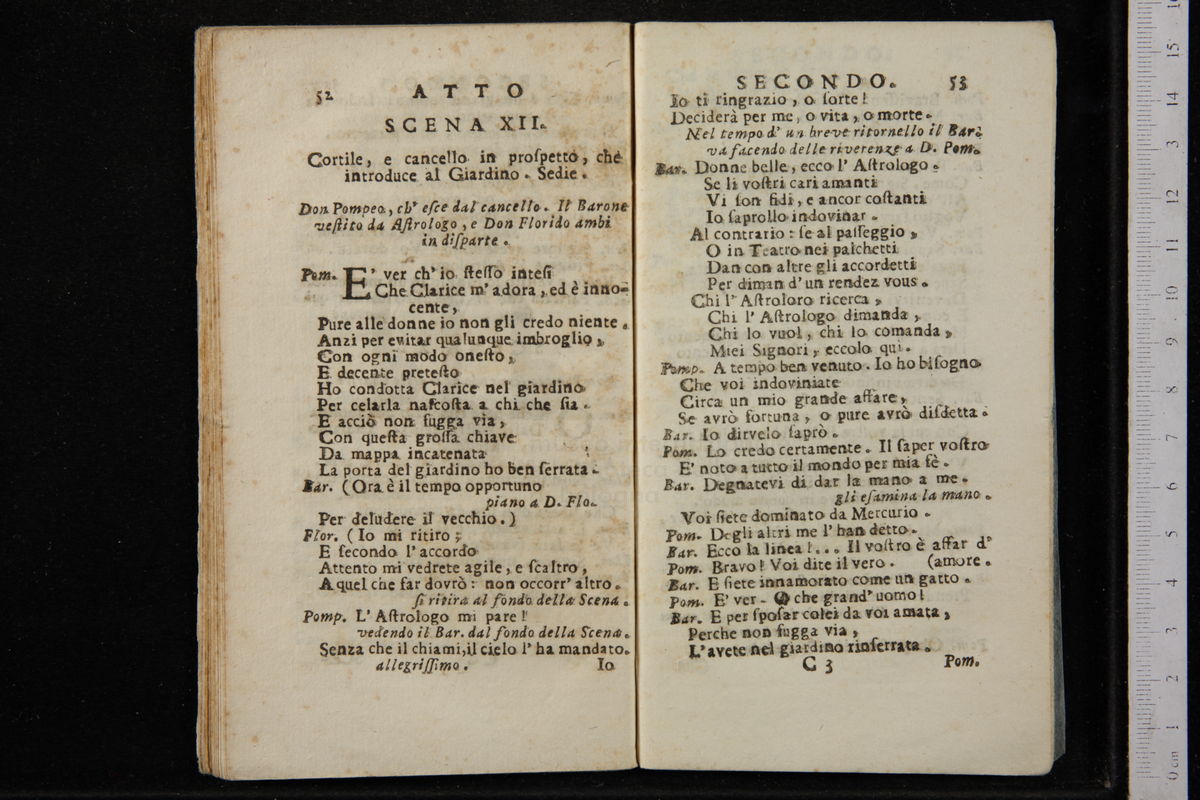 52 ATTO
SCENA XII.
Cortile, e cancello in proſpetto, che
introduce al Giardino. Sedie.
Don Pompeo, ch' eſce dal cancello. Il Barone
veſtito da Aſtrologo, e Don Florido ambi
in diſparte.
Pom. E' ver ch' io ſteſſo inteſi
Che Clarice m' adora, ed è inno-
cente,
Pure alle donne io non gli credo niente.
Anzi per evitar qualunque imbroglio,
Con ogni modo oneſto,
E decente preteſto
Ho condotta Clarice nel giardino
Per celarla naſcoſta a chi che ſia.
E acciò non fugga via,
Con queſta groſſa chiave
Da mappa incatenata
La porta del giardino ho ben ſerrata.
Bar. (Ora è il tempo opportuno
piano a D. Flo.
Per deludere il vecchio.)
Flor. (Io mi ritiro;
E ſecondo l' accordo
Attento mi vedrete agile, e ſcaltro,
A quel che far dovrò: non occorr' altro.
ſi ritira al fondo della Scena.
Pomp. L' Aſtrologo mi pare!
vedendo il Bar. dal fondo della Scena.
Senza che il chiami, il cielo l' ha mandato.
allegriſſimo. Io
SECONDO. 53
Io ti ringrazio, o ſorte!
Deciderà per me, o vita, o morte.
Nel tempo d' un breve ritornello il Bar.
va facendo delle riverenze a D. Pom.
Bar. Donne belle, ecco l' Aſtrologo.
Se li voſtri cari amanti
Vi ſon fidi, e ancor coſtanti
Io ſaprollo indovinar.
Al contrario: ſe al paſſeggio,
O in Teatro nei palchetti
Dan con altre gli accordetti
Per diman d' un rendez vous.
Chi l' Aſtroloro ricerca,
Chi l' Aſtrologo dimanda,
Chi lo vuol, chi lo comanda,
Miei Signori, eccolo qui.
Pomp. A tempo ben venuto. Io ho biſogno
Che voi indoviniate
Circa un mio grande affare,
Se avrò fortuna, o pure avrò diſdetta.
Bar. Io dirvelo ſaprò.
Pom. Lo credo certamente. Il ſaper voſtro
E' noto a tutto il mondo per mia fè.
Bar. Degnatevi di dar la mano a me.
gli eſamina la mano.
Voi ſiete dominato da Mercurio.
Pom. Degli altri me l' han detto.
Bar. Ecco la linea!... Il voſtro è affar d'
Pom. Bravo! Voi dite il vero. (amore.
Bar. E ſiete innamorato come un gatto.
Pom. E' ver. O che grand' uomo!
Bar. E per ſpoſar colei da voi amata,
Perche non fugga via,
L' avete nel giardino rinſerrata.
C 3 Pom.
0 cm 1 2 3 4 5 6 7 8 9 10 11 12 13 14 15